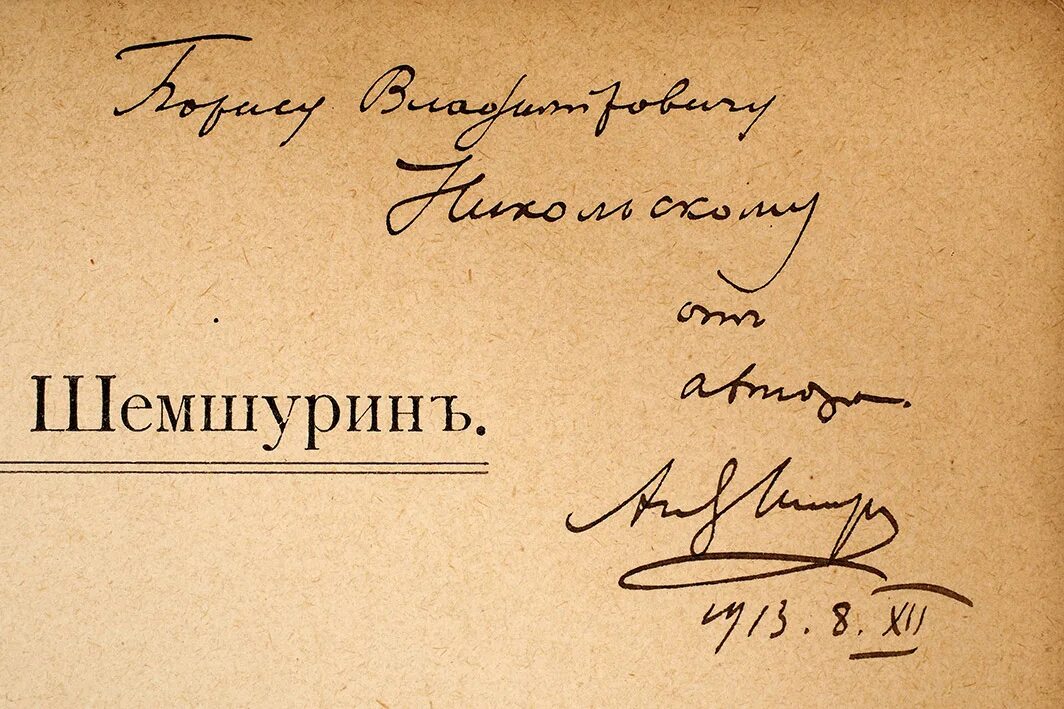 Борису Владимировичу
Никольскому
отъ
автора.
Шемшуринъ.
1913. 8. XII